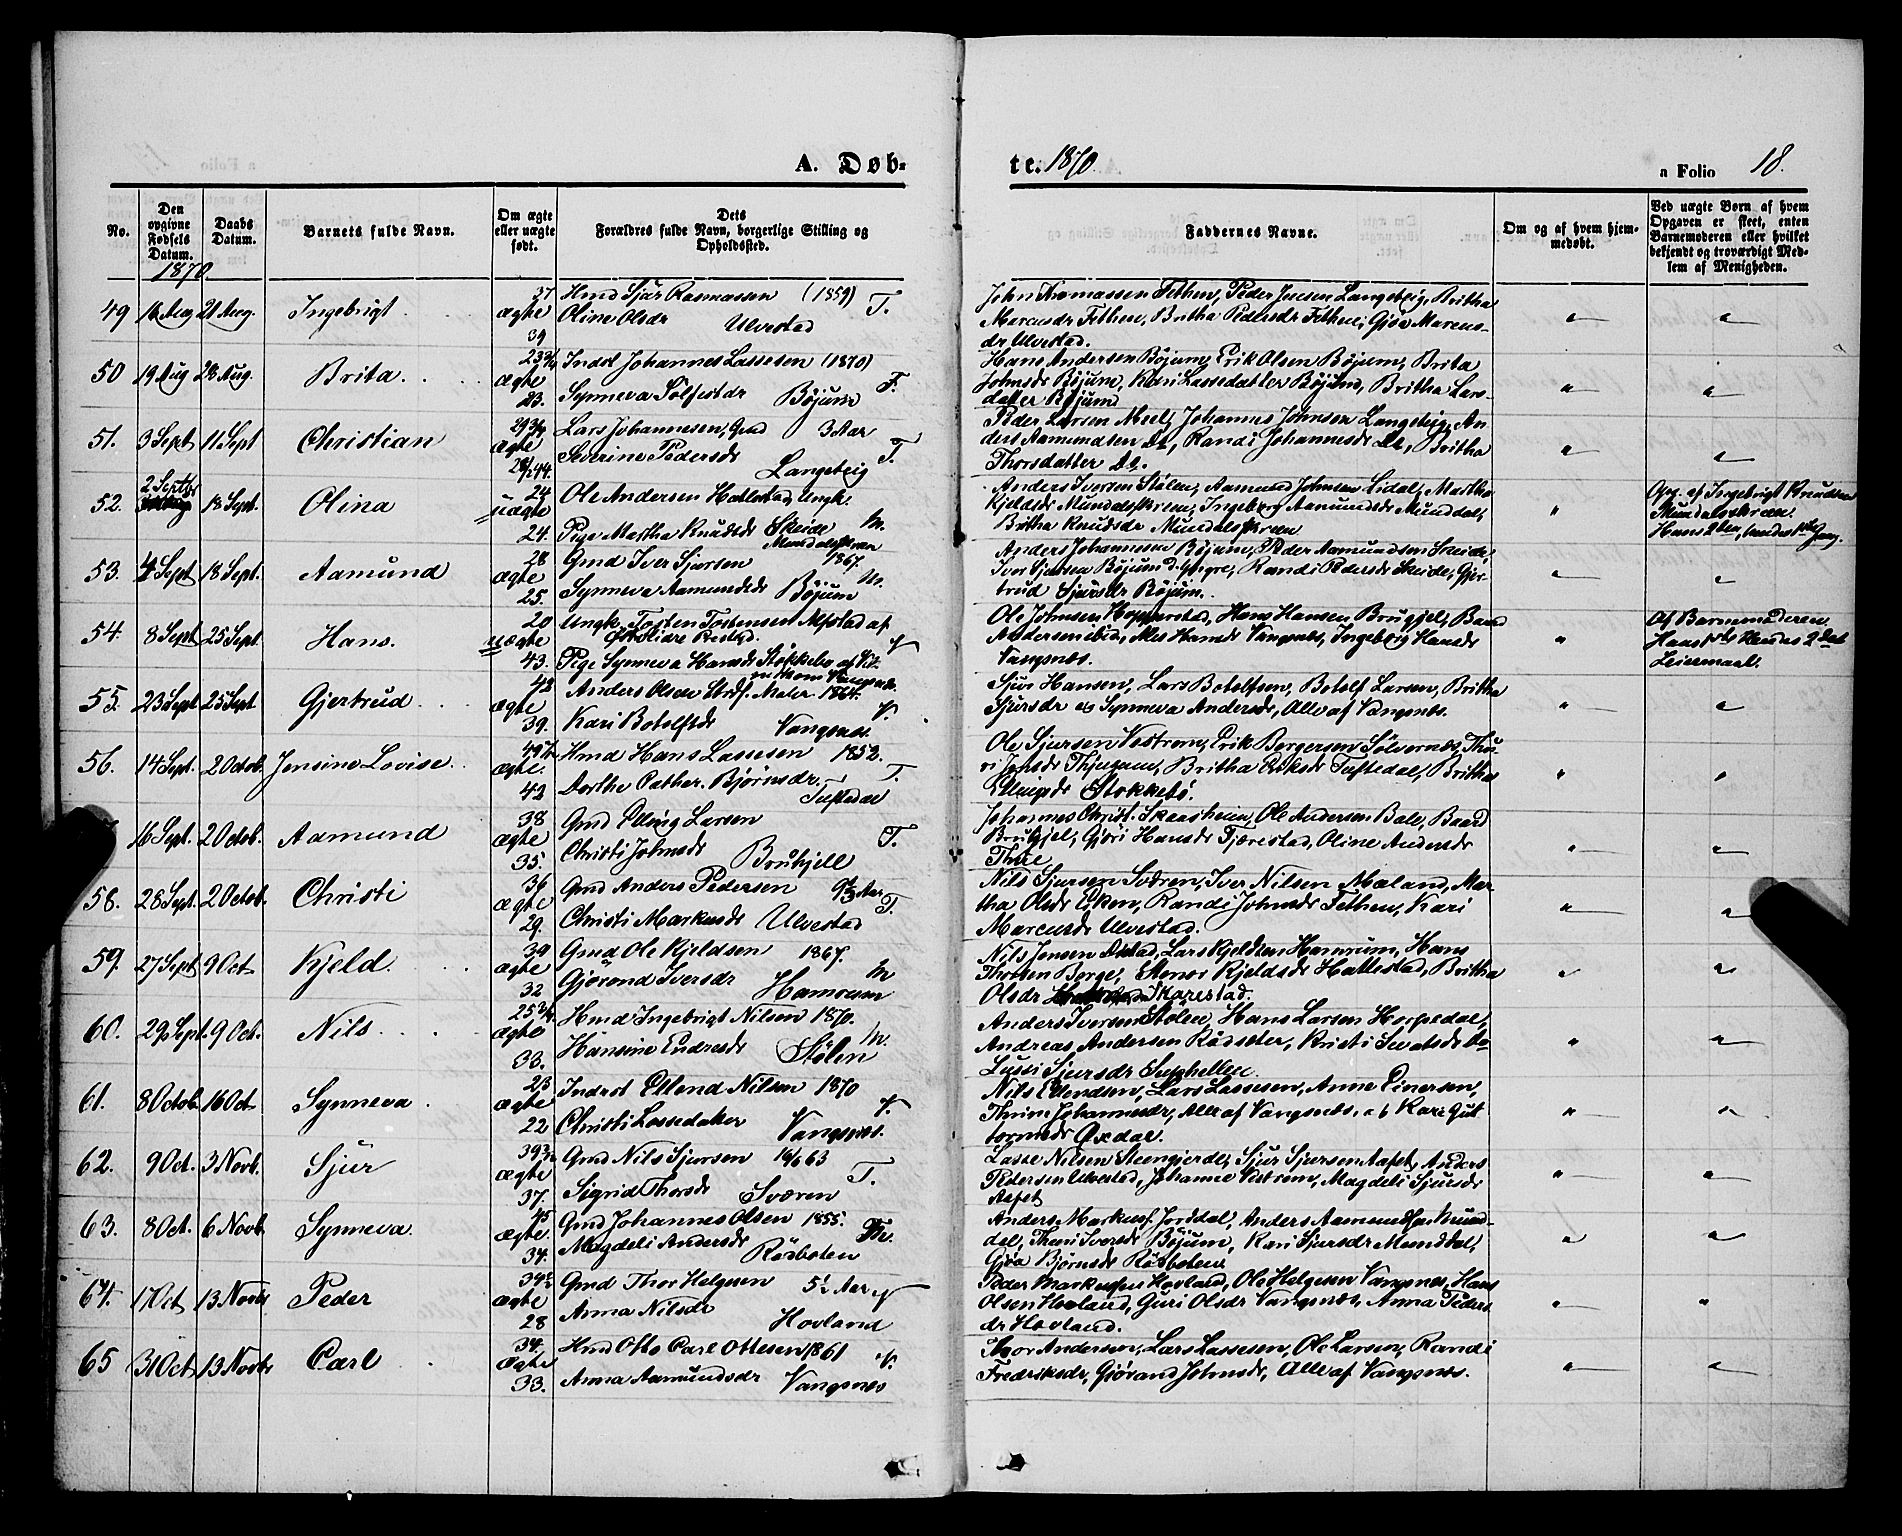 A. Døb-
te. 1870.
a Folio 18.
No.
Den opgivne Fødsels Datum.
Daabs Datum.
Barnets fulde Navn.
Om ægte eller uægte født.
Dets Forældres fulde Navn, borgerlige Stilling og Opholdssted.
Faddernes Navne.
Om og af hvem hjemmedøbt.
Ved uægte Børn af hvem Opgaven er skeet, enten Barnemoderen eller hvilket bekjendt og troværdigt Medlem af Menigheden.
1870
49 16 Aug 21 Aug. Ingebrigt
37 ægte 39
Hmd Sjur Rasmussen (1859) T.
Oline Olsdr Ulvestad
John Thomassen Fethen, Peder Jensen Langeteig, Britha
Marcusdr Fethen, Britha Pedersdr Fethen, Gjøa Marcus-
dr Ulvestad.
50 19 Aug 28 Aug. Brita
ægte 23.
Inderst Johannes Lassesen (1870)
Synneva Tolfestdr Böjum F.
Hans Andersen Böjum, Erik Olsen Böjum, Brita
Johnsdr Böjum, Kari Lassedatter Böjum, Britha Lars-
datter Böjum
51. 3 Sept 11 Sept Christian
ægte
Lars Johannesen, Gmd 3 Aar
Severine Pedersdr T.
Langeteig
Peder Larsen Meel, Johannes Johnsen Langeteig, An-
ders Aamundsen Do, Randi Johannesdr Do, Britha
Thorsdatter Do.
52. 2 Septbr 18 Sept. Olina
24 uægte 24.
Ole Andersen Hatlestad Ungk.
Pige Martha Knudsdr Skeide M.
Mundalsskreen
Anders Iversen Stølen, Aamund Johnsen Lidal, Martha
Kjeldsdr Mundalsskreen, Ingeborg Aamundsdr Mundal,
Britha Knudsdr Mundalsskreen
Opg. af Ingebrigt Knudsen
Mundalsskreen.
Hans 2den, hendes 1ste Gang.
53. 4 Sept 18 Sept. Aamund
28 ægte 25.
Gmd Iver Sjursen 1867.
Synneva Aamundsdr Böjum M.
Anders Johannesen Böjum, Peder Aamundsen Skeide,
Iver Sjursen Böjum d. yngre, Randi Pedersdr Skeide, Gjer-
trud Sjursdr Böjum.
54. 8 Sept 25 Sept. Hans.
20 uægte 43.
Ungk. Tosten Tostensen Alfstad af
Pige Synneva Hansdr Stokkebø af
Ole Johnsen Hopperstad, Hans Hansen Bruggjel, Baard
Andersen ibid, Alis Hansdr Vangsnes, Ingeborg Hansdr
Vangsnæs.
Af Barnemoderen.
Hans 1ste Hendes 2det
Leiermaal.
55. 23 Sept 25 Sept Gjertrud
42 ægte 39.
Anders Olsen Strdf. Maler 1864.
Kari Botolfsdr Vangsnæs. V.
Sjur Hansen, Lars Botolfsen, Botolf Larsen, Britha
Sjursdr og Synneva Andersdr, Alle af Vangsnæs.
56. 14 Sept. 2 Octob. Jensine Lovise.
ægte. 42
Hmd Hans Lassesen 1852.
Dorthe Cathr. Bjørnsdr T.
Tuftedal
Ole Sjursen Vestrem, Erik Børgersen Sölvernæs, Thu-
ri Jonsdr Thjugum, Britha Eriksdr Tuftedal, Britha
Ellingsdr Stokkebö.
16 Sept. 2 Octob. Aamund
38 ægte 35.
Gmd Elling Larsen
Christi Johnsdr Bruhjell T.
Johannes Christ. Skaasheim, Ole Andersen Bale, Baard
Bruhjel, Gjöri Hansdr Tjærestad, Oline Andersdr
Thue
58. 28 Sept. 2 Octob. Christi
36 ægte 29.
Gmd Anders Pedersen Aar
Christi Markusdr Ulvestad T.
Nils Sjursen Sværen, Iver Nilsen Mæland, Mar-
tha Olsdr Eken, Randi Johnsdr Fethen, Kari
Marcusdr Ulvestad.
59. 27 Sept 9 Oct Kjeld.
39 ægte 32
Gmd Ole Kjeldsen 1867.
Gjörond Iversdr Hamrum M
Nils Jensen Distad, Lars Kjeldsen Hamrum, Hans
Thorsten Berge, Stenor Kjeldsdr Hattestad, Britha
Olsdr Skarestad.
60. 29 Sept. 9 Oct. Nils.
ægte 33.
Hmd Ingebrigt Nilsen 1870.
Hansine Endresdr Stölen M.
Anders Iversen Stölen, Hans Larsen Horpedal,
Andreas Andersen Rödseter, Kristi Do
Lussi Sjursdr Supphellen.
61. 8 Octob. 16 Oct. Synneva
23 ægte 22
Inderst Ellend Nilsen 1870
Christi Lassedatter Vangsnæs. V.
Nils Ellendsen, Lars Lassesen, Anne Einersen,
Thrine Johannesdr, Alle af Vangsnæs, og Kari Gut-
tormsdr Oxedal.
62. 9 Oct. 3 Novb. Sjur
ægte 37.
Gmd Nils Sjursen 16/6 63
Sigrid Thorsdr Sværen T.
Lasse Nilsen Steengjerde, Sjur Sjursen Aafet, Anders
Pedersen Ulvestad, Johanne Vestrem, Magdeli Sjursdr
Aafet
63. 8 Oct. 6 Novb. Synneva.
45 ægte. 34.
Gmd Johannes Olsen 1855.
Magdeli Andersdr Rösboten
Anders Markusf. Jorddal, Anders Aamundsen Mun-
dal, Thuri Iversdr Böjum, Kari Sjursdr Munddal,
Gjöa Bjørnsdr Rösboten
64. 17 Oct 13 Novbr Peder
ægte 28
Gmd Thor Helgesen 5½ Aar V
Anna Nilsdr Hovland
Peder Markussen Hovland, Ole Helgesen Vangsnes, Hans
Olsen Hovland, Guri Olsdr Vangsnæs, Anna Peders-
dr Hovland.
65 31 Oct 13 Novbr Carl
34. ægte 33.
Hmd Otto Carl Ottesen 1861 V.
Anna Aamundsdr Vangsnes
Thor Andersen, Lars Lassesen, Ole Larsen, Randi
Fredriksdr, Gjörand Johnsdr, Alle af Vangsnæs.